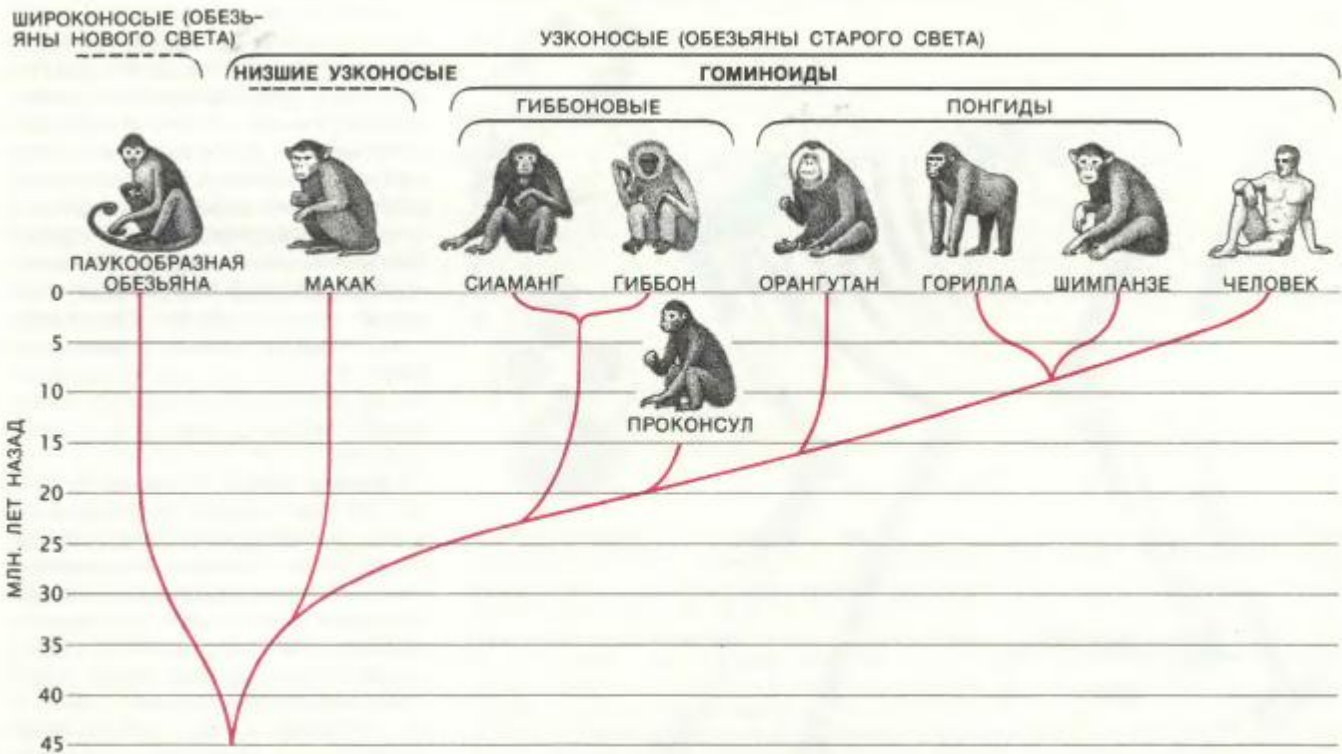 ШИРОКОНОСЫЕ (ОБЕЗЬ-
ЯНЫ НОВОГО СВЕТА)
УЗКОНОСЫЕ (ОБЕЗЬЯНЫ СТАРОГО СВЕТА)
НИЗШИЕ УЗКОНОСЫЕ
ГОМИНОИДЫ
ГИББОНОВЫЕ
ПОНГИДЫ
ПАУКООБРАЗНАЯ
ОБЕЗЬЯНА
МАКАК
СИАМАНГ
ГИББОН
ОРАНГУТАН
ГОРИЛЛА
ШИМПАНЗЕ
ЧЕЛОВЕК
ПРОКОНСУЛ
МЛН. ЛЕТ НАЗАД
0
5
10
15
20
25
30
35
40
45